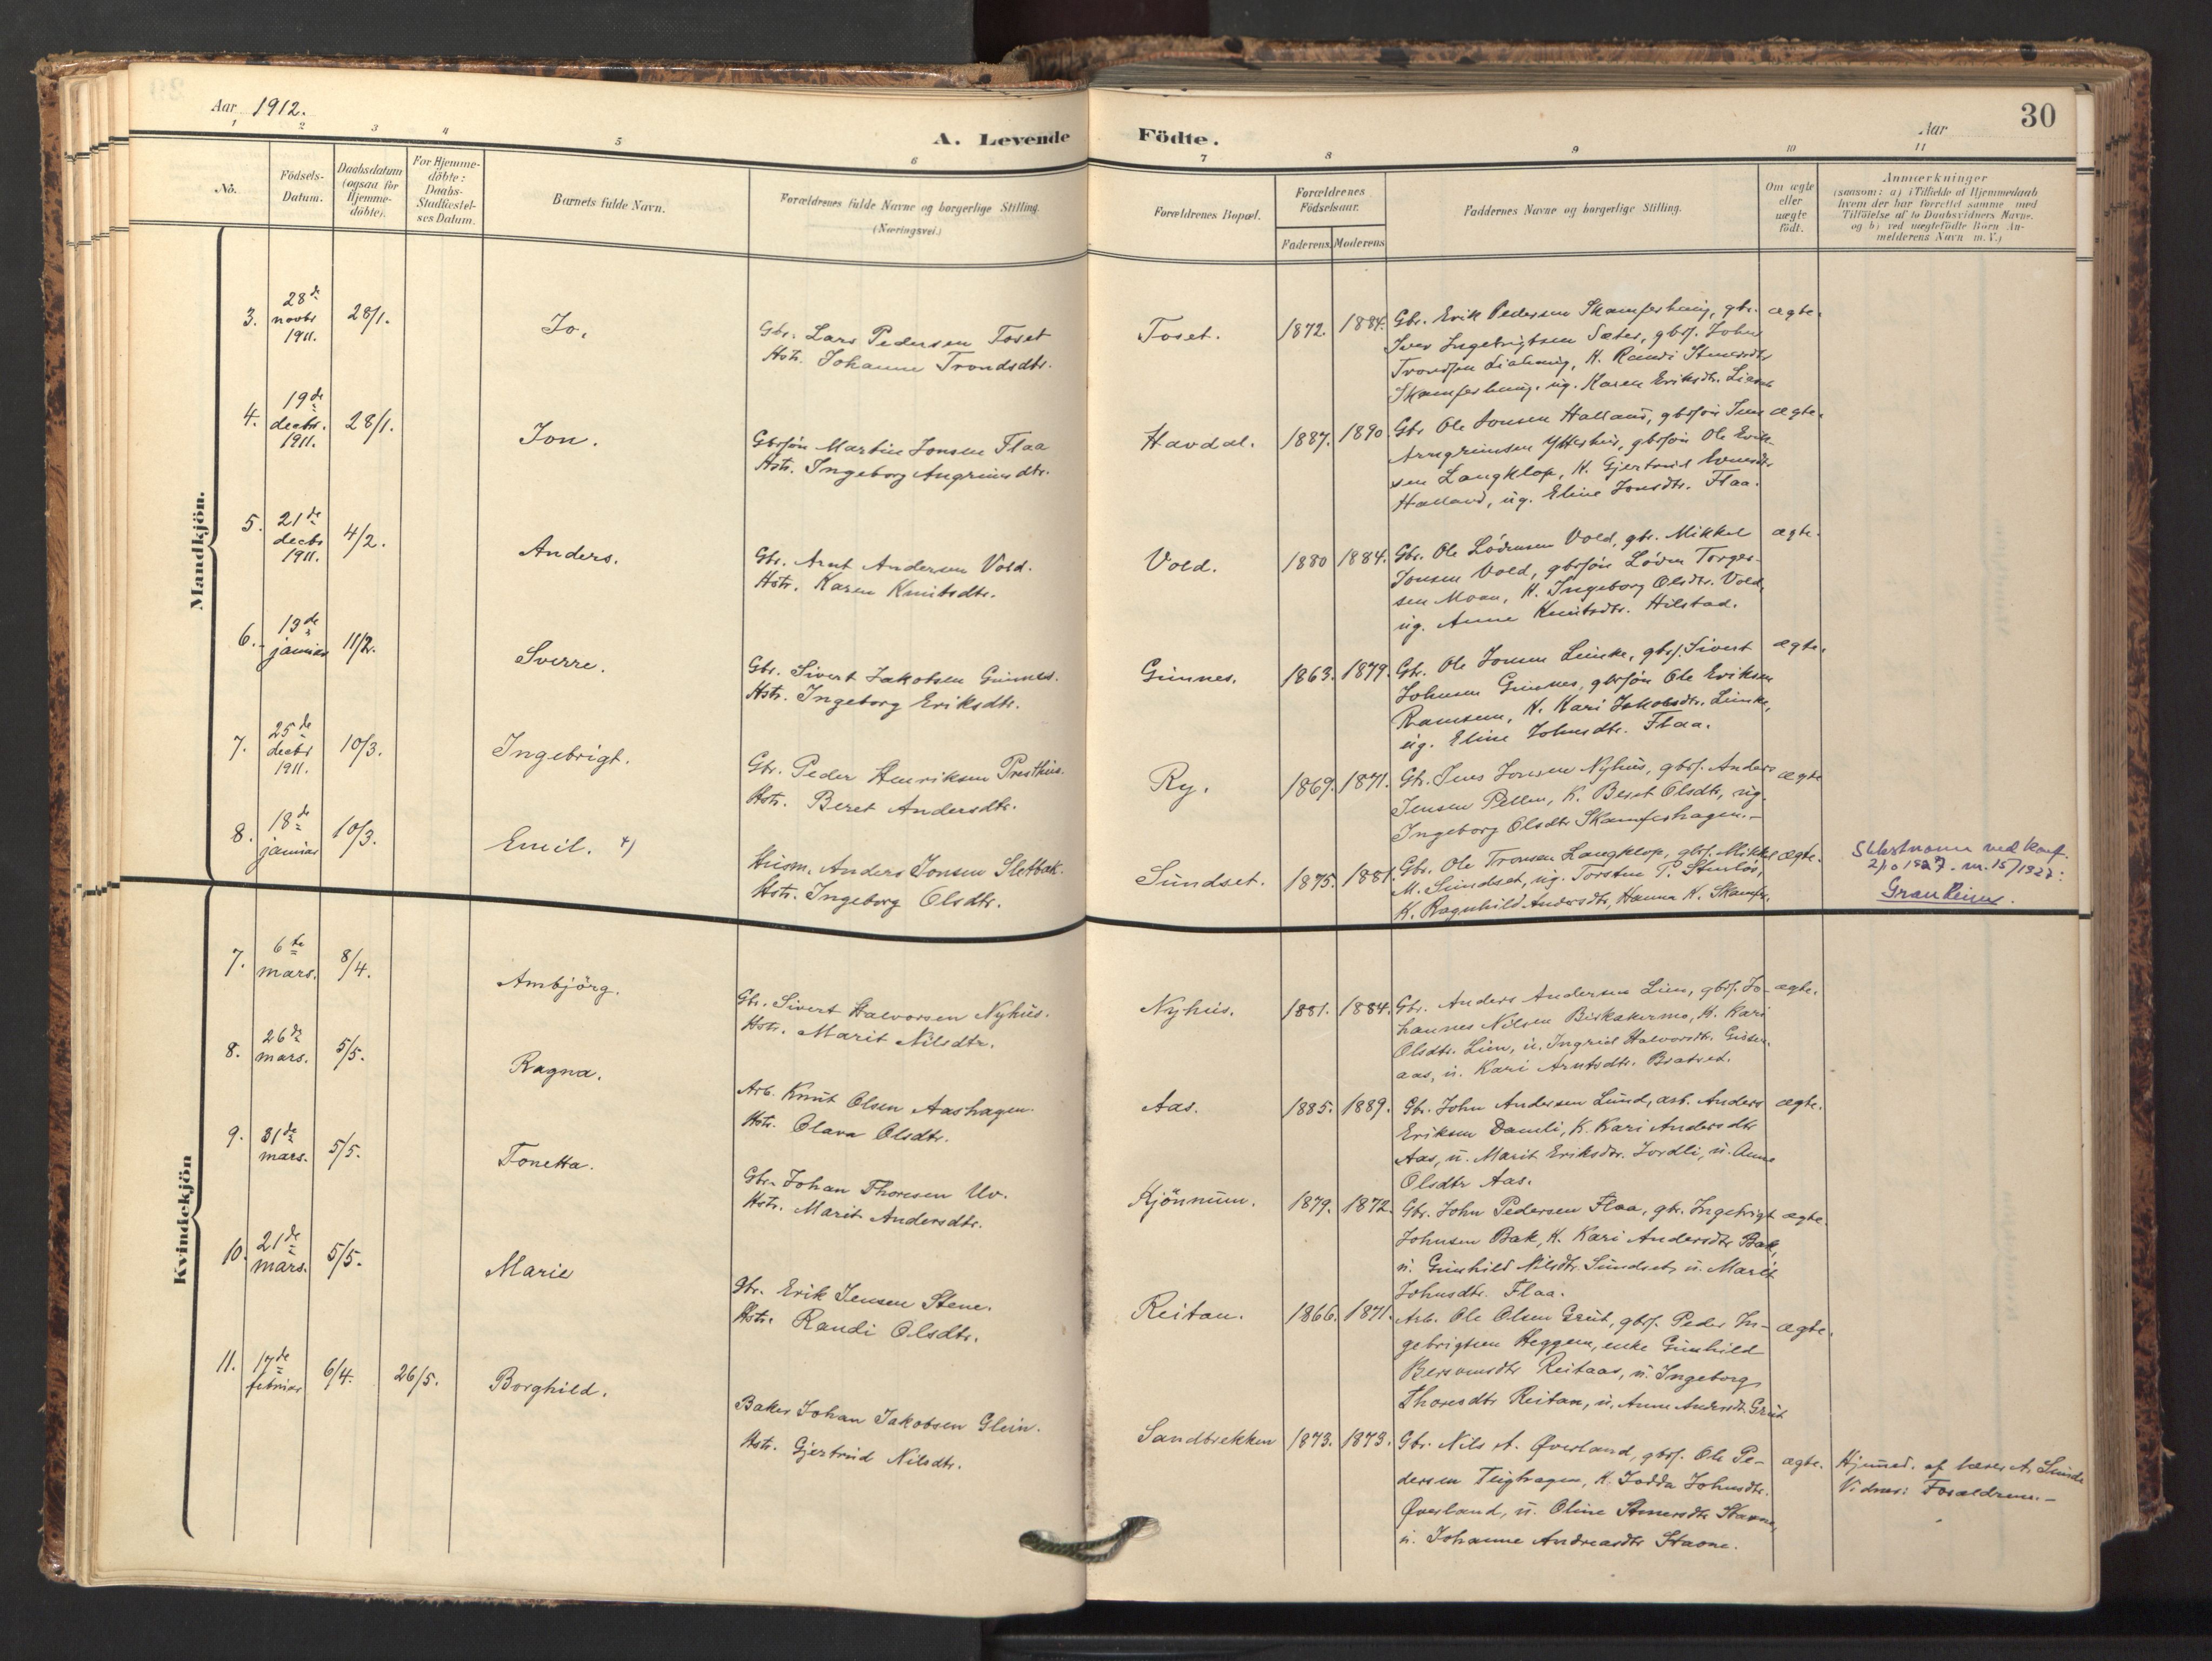 Aar 1912.
A. Levende
Födte.
Aar
30
1 2 3 4 5 6
7 8 9 10 11
No.
Födsels-
Datum.
Daabsdatum
(ogsaa for
Hjemme-
döbte).
For Hjemme-
döbte:
Daabs-
Stadfæstel-
ses Datum.
Barnets fulde Navn.
Forældrenes fulde Navne og borgerlige Stilling.
(Næringsvei.)
Forældrenes Bopæl.
Forældrenes
Födselsaar.
Faderens. Moderens
Faddernes Navne og borgerlige Stilling.
Om ægte
eller
uægte
födt.
Anmærkninger
(saasom: a) i Tilfælde af Hjemmedaab
hvem der har forrettet samme med
Tilföielse af to Daabsvidners Navne,
og b) ved uægtefödte Börn An-
melderens Navn m. V.)
Mandkjön.
3.
28de
novbr
1911.
28/1.
Jo.
Gbr. Lars Pedersen Toset
Hstr. Johanne Trondsdtr.
Toset.
1872. 1884.
Gbr. Erik Pedersen Skamferhaug, gbr.
Iver Ingebrigtsen Sæter, gbrs. John
Tronsen Liahaug, K. Randi
Skamferhaug, ug. Karen Eriksdtr.
ægte.
4.
19de
decbr.
1911.
28/1.
Jon.
Gbrsøn Martin Jonsen Flaa
Hstr. Ingeborg Angrimsdtr.
Havdal.
1887. 1890.
Gbr. Ole Jonsen Halland, gbrsøn Jens
Arngrimsen Ytterhus, gbrsøn Ole Erik-
sen Langklop, K. Gjertrud
Halland, ug. Eline Jonsdtr. Flaa.
ægte.
5.
21de
decbr
1911.
4/2.
Anders.
Gbr. Arnt Andersen Vold.
Hstr. Karen Knutsdtr.
Vold.
1880 1884.
Gbr. Ole Lødensen Vold, gbr. Mikkel
Jonsen Vold, gbrsøn Løden Torger-
sen Moan, K. Ingeborg Olsdtr. Vold,
ug. Anne Knutsdtr. Hilstad.
ægte.
6.
13de
januar
11/2.
Sverre.
Gbr. Sivert Jakobsen Gunnes.
Hstr. Ingeborg Eriksdtr.
Gunnes.
1863. 1879.
Gbr. Ole Jonsen Lunke, gbrs. Sivert
Johnsen Gunnes, gbrsøn Ole Eriksen
Ramsem, K. Kari Jakobsdtr. Lunke,
ug. Eline Johnsdtr. Flaa.
ægte.
7.
25de
decbr
1911.
10/3.
Ingebrigt.
Gbr. Peder Henriksen Presthus.
Hstr. Beret Andersdtr.
Ry.
1869. 1871.
Gbr. Jens Jonsen Nyhus, gbrs. Anders
Jensen Pellen, K. Beret Olsdtr, ug.
Ingeborg Olsdtr Skamferhagen.-
ægte
8.
18de
januar
10/3.
Emil. +)
Husm. Anders Jonsen Sletbak.
Hstr. Ingeborg Olsdtr.
Sundset.
1875. 1881.
Gbr. Ole Tronsen Langklop, gbrs. Mikkel
M. Sundset, ug. Torsten P. Stuelös,
K. Ragnhild Andersdtr, Hanna K. Skamfer.
ægte.
Slektsnavn ved konf.
2/10 1927. nr. 15/1927:
Granheim.
Kvindekjön
7.
6te
mars.
8/4.
Ambjörg.
Gbr. Sivert Halvorsen Nyhus.
Hstr. Marit Nilsdtr.
Nyhus.
1881. 1884.
Gbr. Anders Andersen Lien, gbrs. Jo-
hannes Nilsen Biskakermo, K. Kari
Olsdtr. Lien, u. Ingrid Halvorsdtr.
aas, u. Kari Arntsdtr. Bratset.
ægte.
8.
26de
mars.
5/5.
Ragna.
Arb. Knut Olsen Aashagen.
Hstr. Olava Olsdtr.
Aas.
1885. 1889.
Gbr. John Andersen Lund, arb. Anders
Eriksen Damli, K. Kari Andersdtr
Aas, u. Marit Eriksdtr. Jordli, u. Anne
Olsdtr Aas.
ægte.
9.
31de
mars.
5/5.
Tonetta.
Gbr. Johan Thoresen Uv.
Hstr. Marit Andersdtr.
Kjönnum.
1879. 1872.
Gbr. John Pedersen Flaa, gbr. Ingebrigt
Johnsen Bak, K. Kari Andersdtr Bak,
u. Gunhild Nilsdtr. Sundset, u. Marit
Johnsdtr. Flaa.
ægte.
10.
21de
mars.
5/5.
Marie
Gbr. Erik Jensen Stene.
Hstr. Randi Olsdtr.
Reitan.
1866. 1871.
Arb. Ole Olsen Grut, gbrs. Peder In-
gebrigtsen Heggem, enke Gunhild
Reitaas, u. Ingeborg
Thoresdtr Reitan, u. Anne Andersdtr. Grut
ægte.
11.
17de
februar
6/4.
26/5.
Borghild.
Baker Johan Jakobsen Glein.
Hstr. Gjertrud Nilsdtr.
Sandbrekken
1873. 1873.
Gbr. Nils A. Øverland, gbrs. Ole Pe-
dersen Teighagen, K. Jodda Johnsdtr.
Øverland, u. Oline Stenersdtr Stavne,
u. Johanne Andreasdtr Stavne.
ægte.
Hjemmed. af lærer A. Sunde
Vidner: Forældrene.-